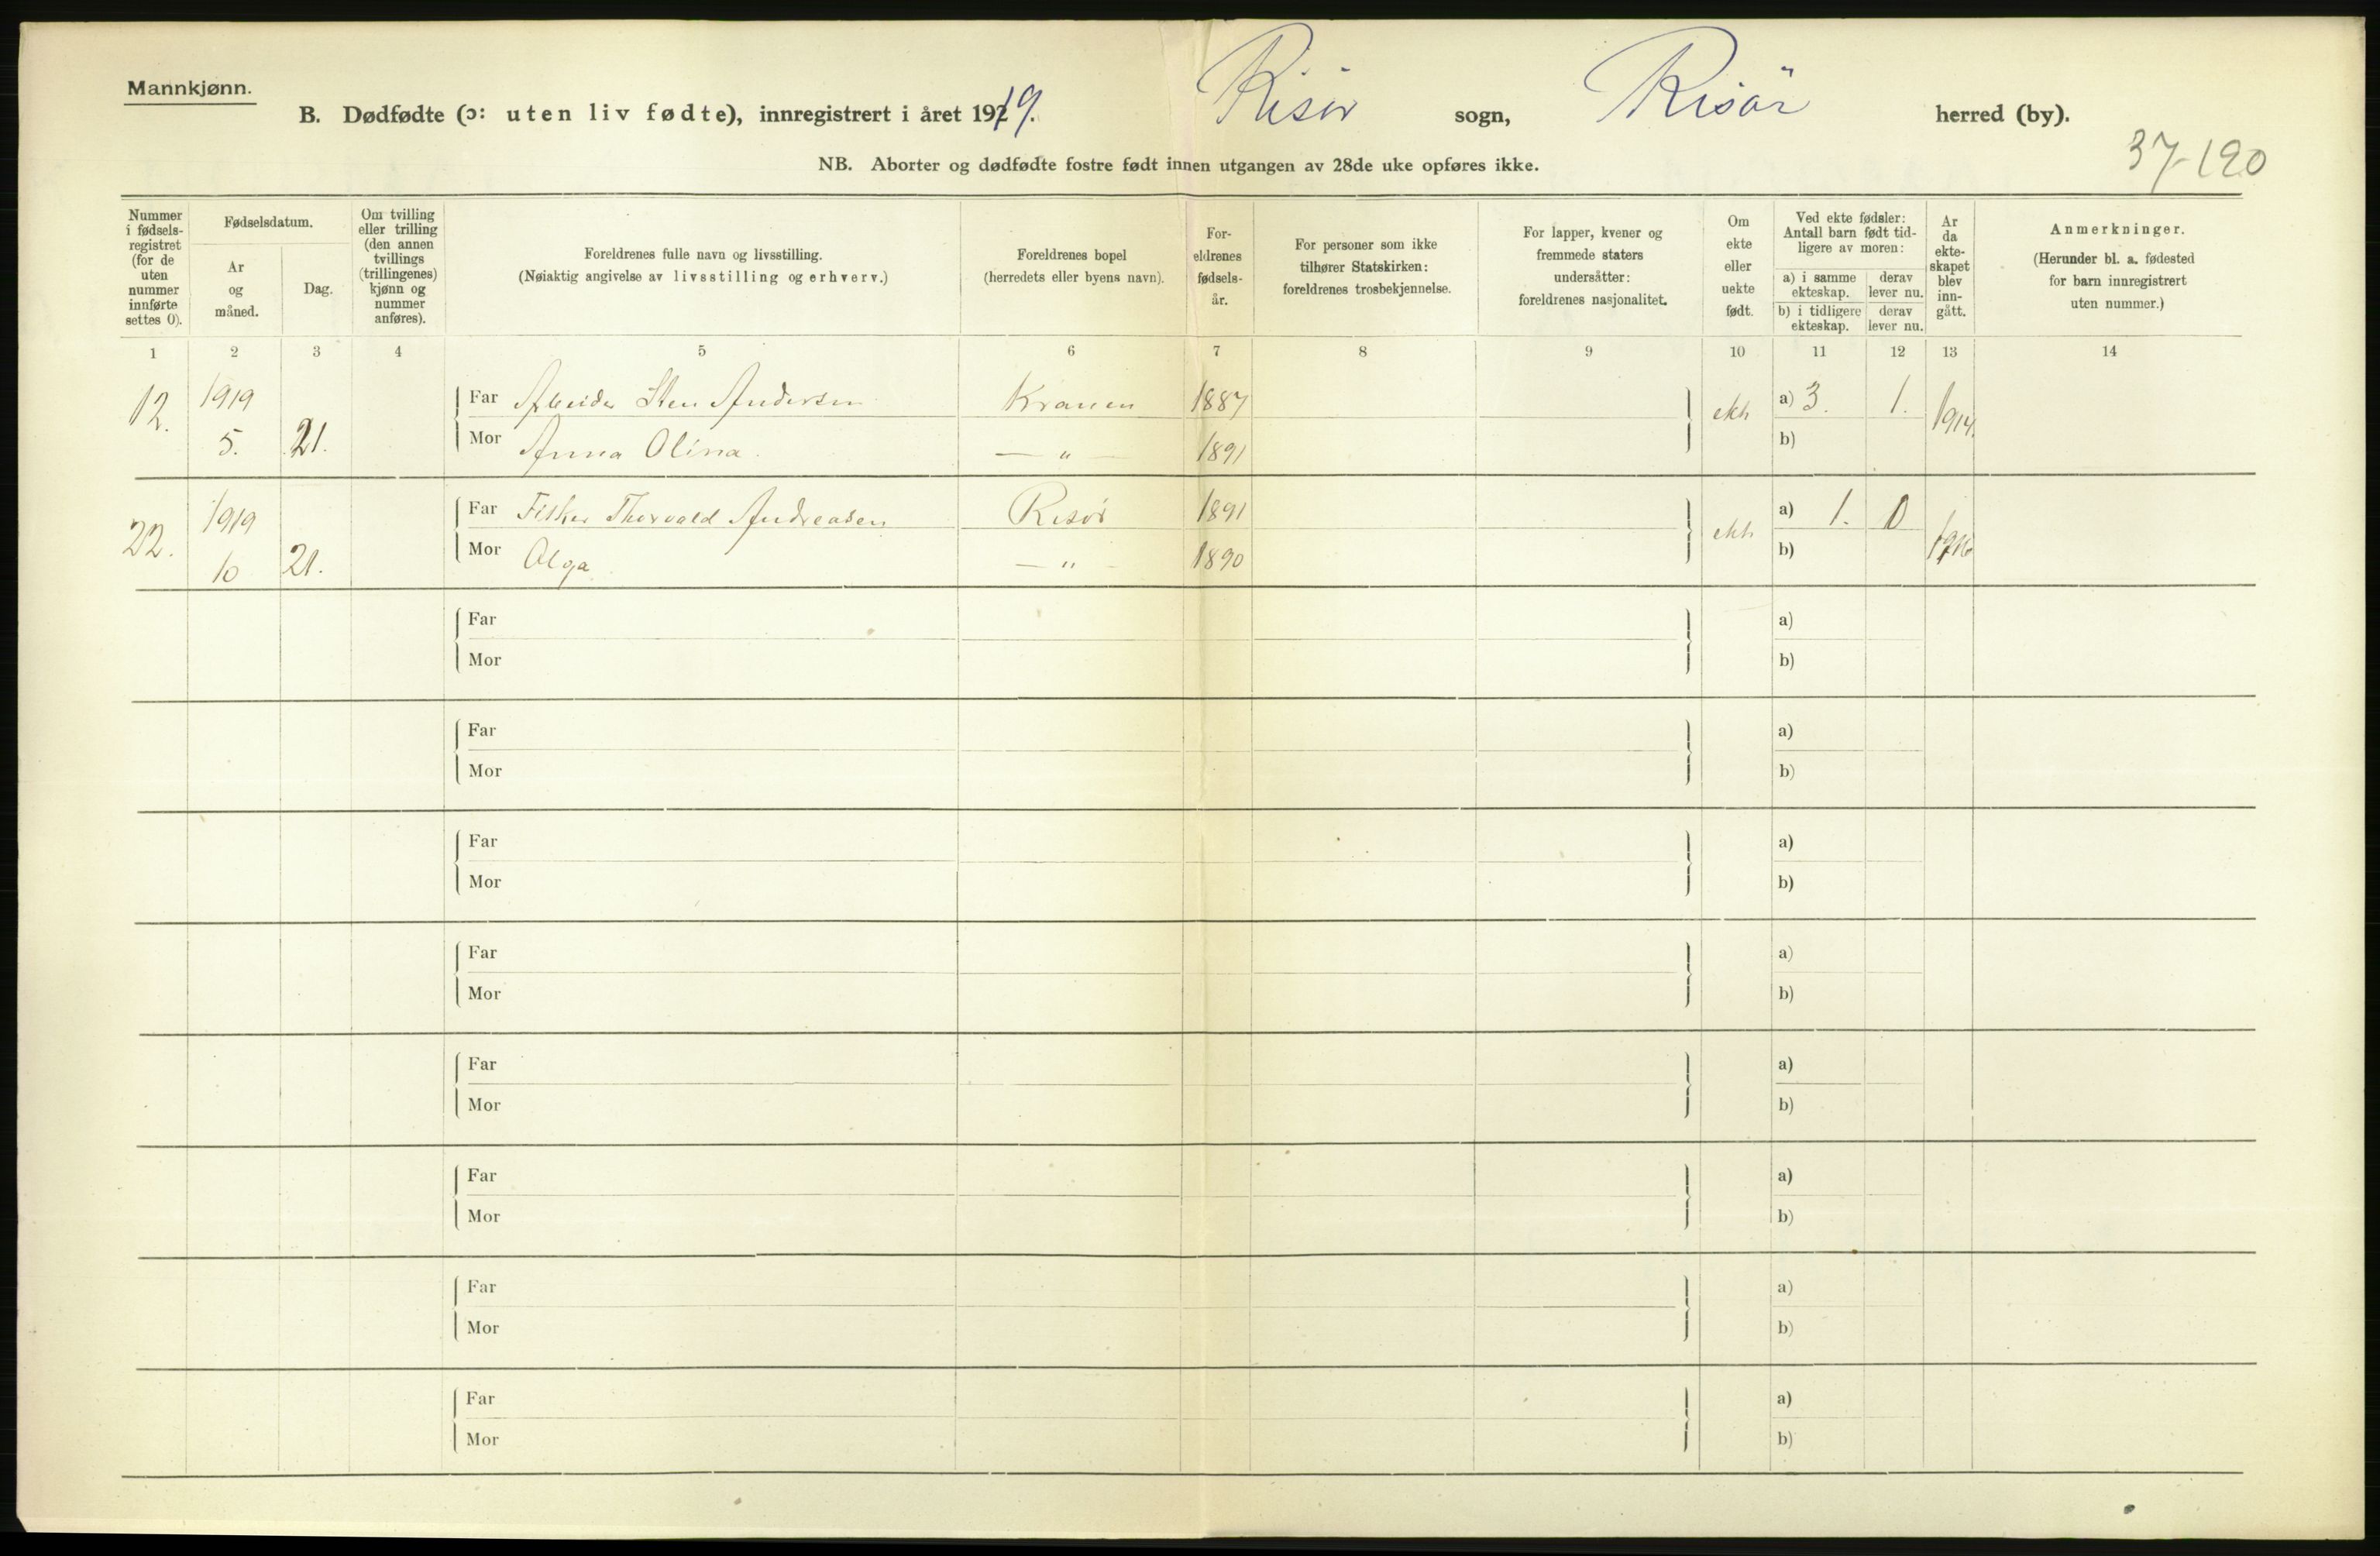 Mannkjønn.
B. Dødfødte (ɔ: uten liv fødte), innregistrert i året 1919. Risör sogn, Risör herred (by).
37-120
NB. Aborter og dødfødte fostre født innen utgangen av 28de uke opføres ikke.
Nummer i fødsels-registret (for de uten nummer innførte settes 0).
Fødselsdatum.
Ar og måned.
Dag.
Om tvilling eller trilling (den annen tvillings (trillingenes) kjønn og nummer anføres).
Foreldrenes fulle navn og livsstilling.
(Nøiaktig angivelse av livsstilling og erhverv.)
Foreldrenes bopel
(herredets eller byens navn).
For-eldrenes fødsels-år.
For personer som ikke tilhører Statskirken: foreldrenes trosbekjennelse.
For lapper, kvener og fremmede staters undersåtter: foreldrenes nasjonalitet.
Om ekte eller uekte født.
Ved ekte fødsler: Antall barn født tid-ligere av moren:
a) i samme ekteskap.
derav lever nu.
b) i tidligere ekteskap.
derav lever nu.
Ar da ekte-skapet blev inn-gått.
Anmerkninger.
(Herunder bl. a. fødested for barn innregistrert uten nummer.)
1 2 3 4 5 6 7 8 9 10 11 12 13 14
12. 1919 Far Arbeider Sten Andersen Kranen 1887 ekte a) 3. 1. 1914.
5. 21. Mor Anna Olina — " — 1891 b)
22. 1919 Far Fisker Thorvald Andreasen Risör 1891 ekte a) 1. 0 1916
10 21. Mor Olga — " — 1890 b)
Far a)
Mor b)
Far a)
Mor b)
Far a)
Mor b)
Far a)
Mor b)
Far a)
Mor b)
Far a)
Mor b)
Far a)
Mor b)
Far a)
Mor b)